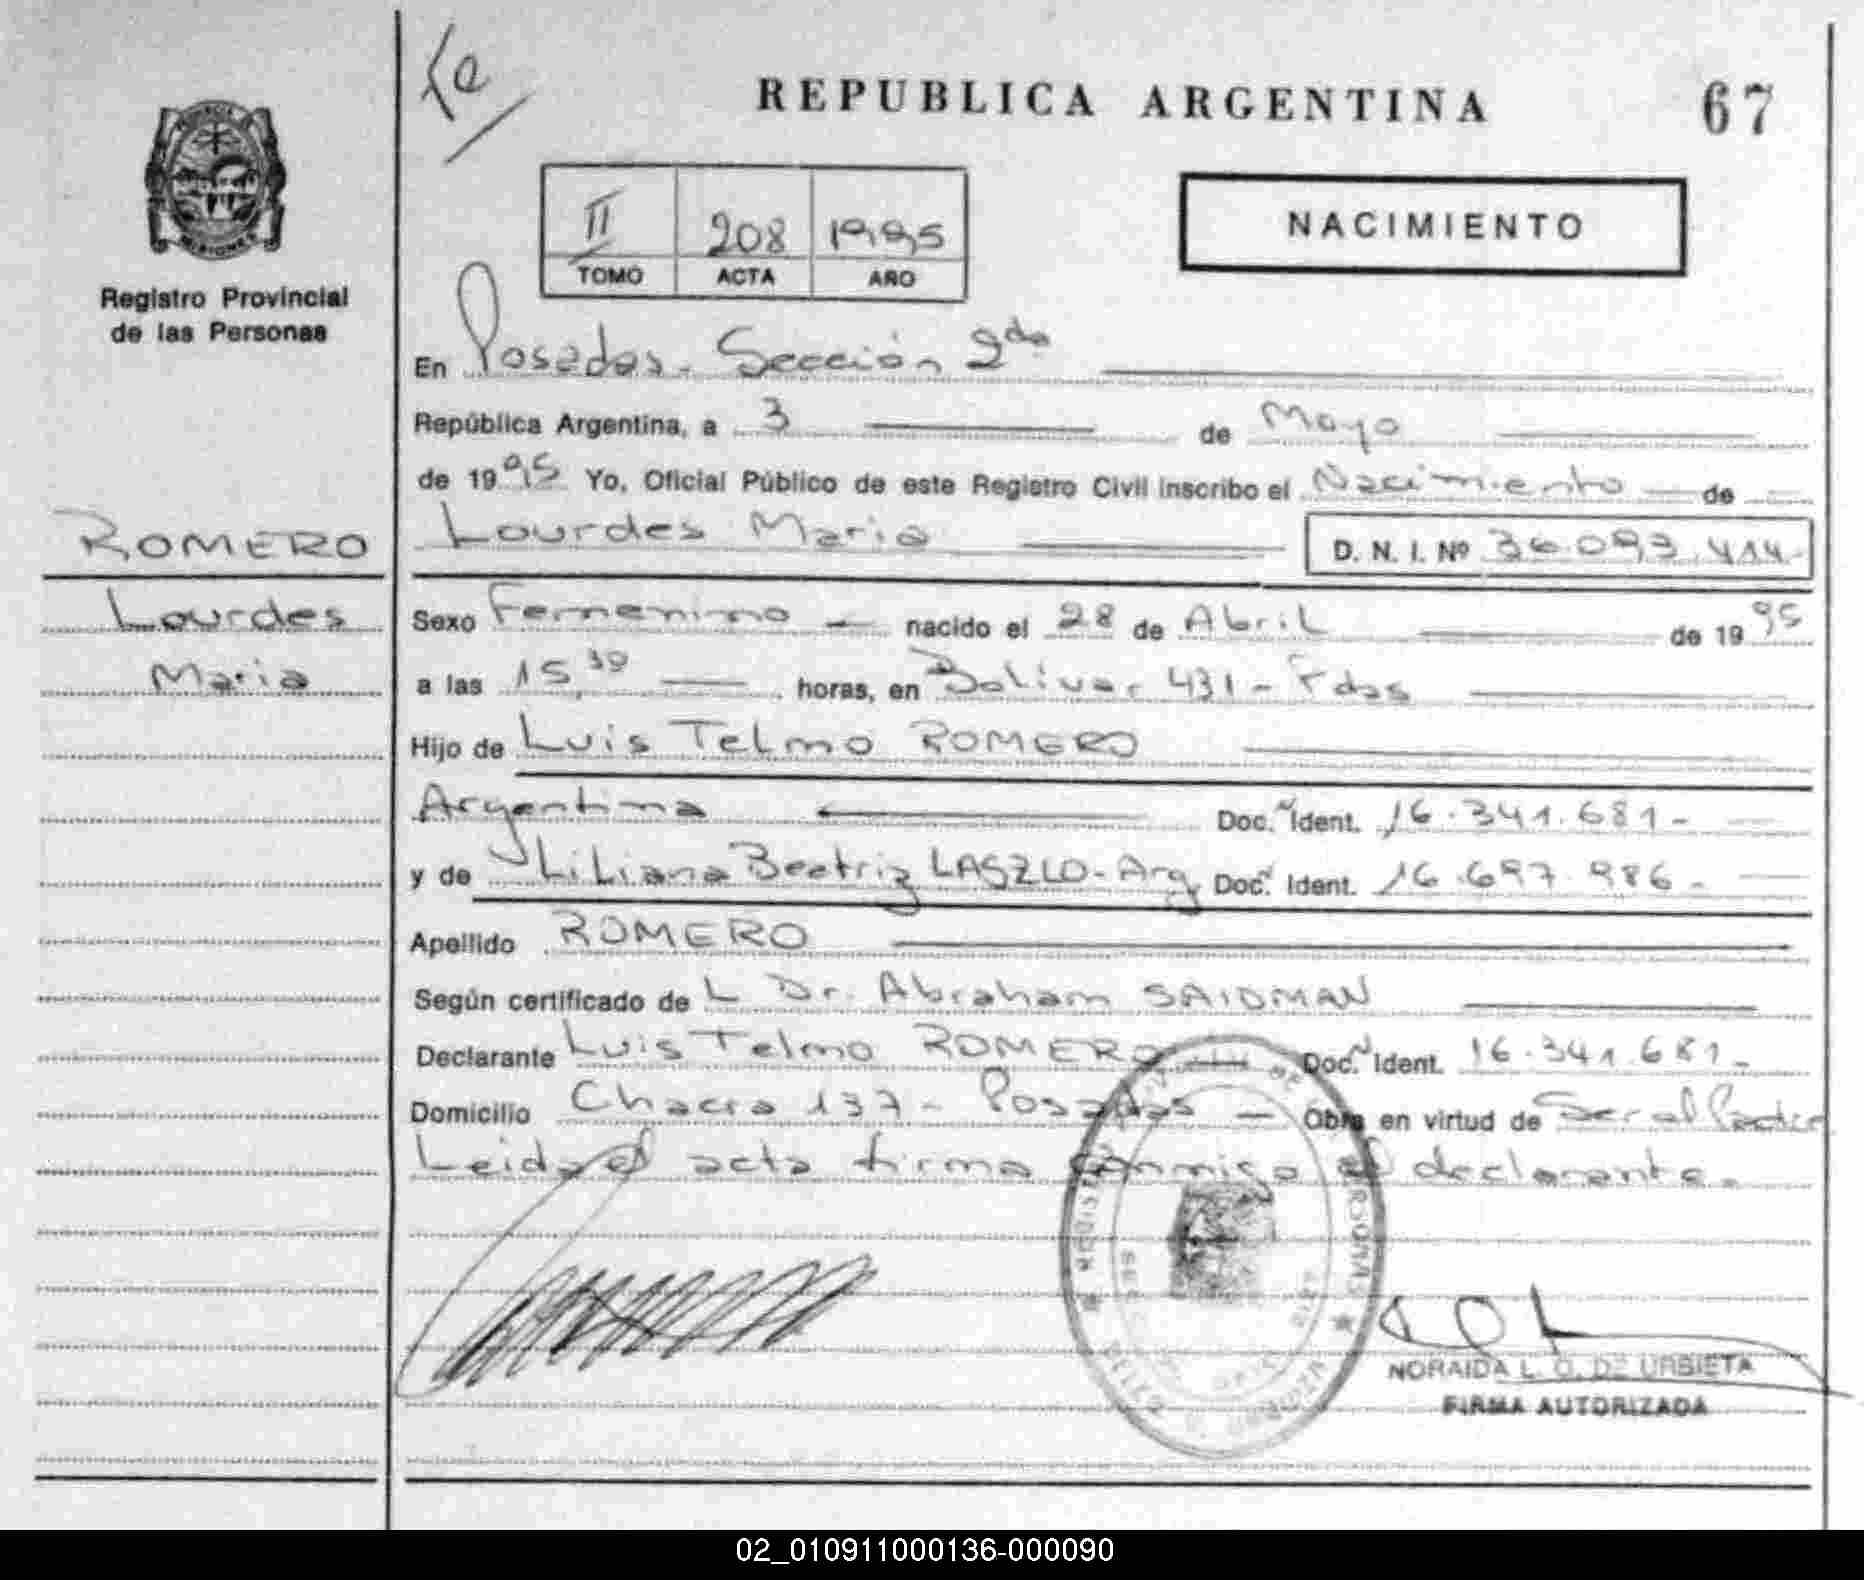 Fe
REPUBLICA ARGENTINA
67
PROVINCIA
MISIONES
Registro Provincial
de las Personas
II 208 1995
TOMO ACTA AÑO
NACIMIENTO
En Posadas. Sección 2da
República Argentina, a 3 de Mayo
de 1995 Yo, Oficial Público de este Registro Civil inscribo el Nacimiento de
ROMERO
Lourdes Maria D. N. I. Nº 36.093.414
Lourdes
Sexo Femenino nacido el 28 de Abril de 1995
Maria
a las 15,30 horas, en Bolivar 431 - Pdas
Hijo de Luis Telmo ROMERO
Argentina Doc. Ident. 16.341.681-
y de Liliana Beatriz LASZLO-Arg Doc. Ident. 16.697.986-
Apellido ROMERO
Según certificado de L Dr. Abraham SAIDMAN
Declarante Luis Telmo ROMERO Doc. Ident. 16.341.681-
Domicilio Chacra 137 - Posadas Obra en virtud de Ser el Padre
Leida el acta firma conmigo el declarante.
NORAIDA L. O. DE URBIETA
FIRMA AUTORIZADA
02_010911000136-000090